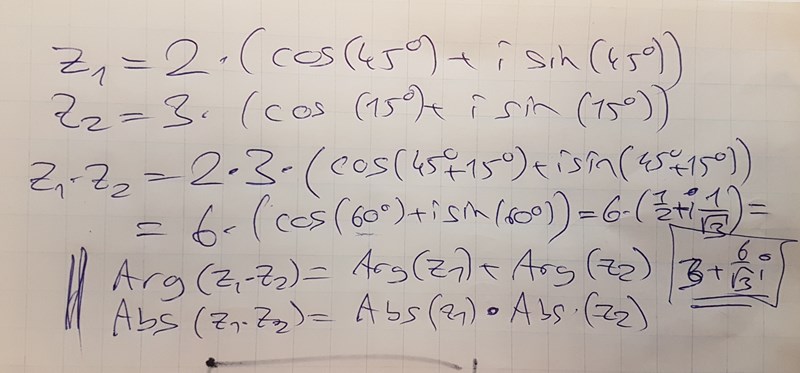 z₁ = 2·(cos(45°) + i sin(45°))
z₂ = 3·(cos (15°) + i sin (15°))
z₁·z₂ = 2·3·(cos(45°+15°) + i sin(45°+15°))
= 6·(cos(60°) + i sin(60°)) = 6·(1/2 + i 1/√3) =
Arg (z₁·z₂) = Arg(z₁) + Arg (z₂) 3 + 6/√3 i
Abs (z₁·z₂) = Abs(z₁) · Abs·(z₂)